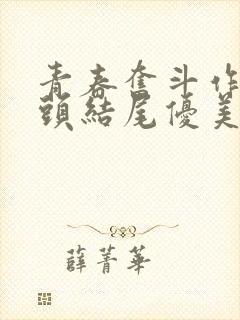 青春奮斗作
頭結尾優美
薛菁華